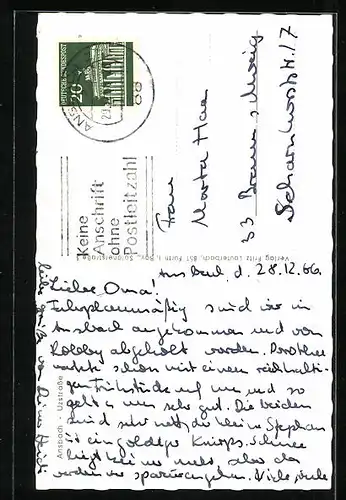 DEUTSCHE BUNDESPOST
20
ANSBACH
88
Keine
Anschrift
ohne
Postleitzahl
Frau
Marta Haa
33 Braunschweig
Scharnhorststr. 17
Verlag Fritz Lauterbach, 851 Fürth i. Bay.
Ansbach - Uzstraße
Ansbach, d. 28.12.66
Liebe Oma!
Fahrplanmäßig sind wir in
Ansbach angekommen und von
abgeholt worden. Dorothee
wartete schon mit einem reichhalti-
gen Frühstück auf uns und so
geht's uns sehr gut. Die beiden
sind sehr nett, der kleine Stephan
ist ein goldiger Knirps. Schnee
liegt keiner mehr, aber da
werden wir spazierengehen. Viele, viele
liebe Grüße von